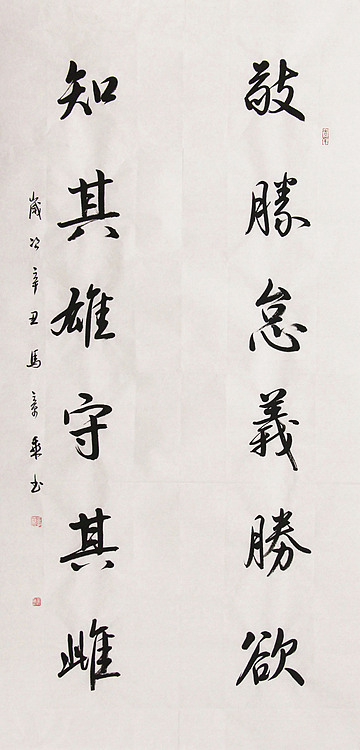 敬勝怠義勝欲
知其雄守其雌
歲次辛丑馬彥乘书